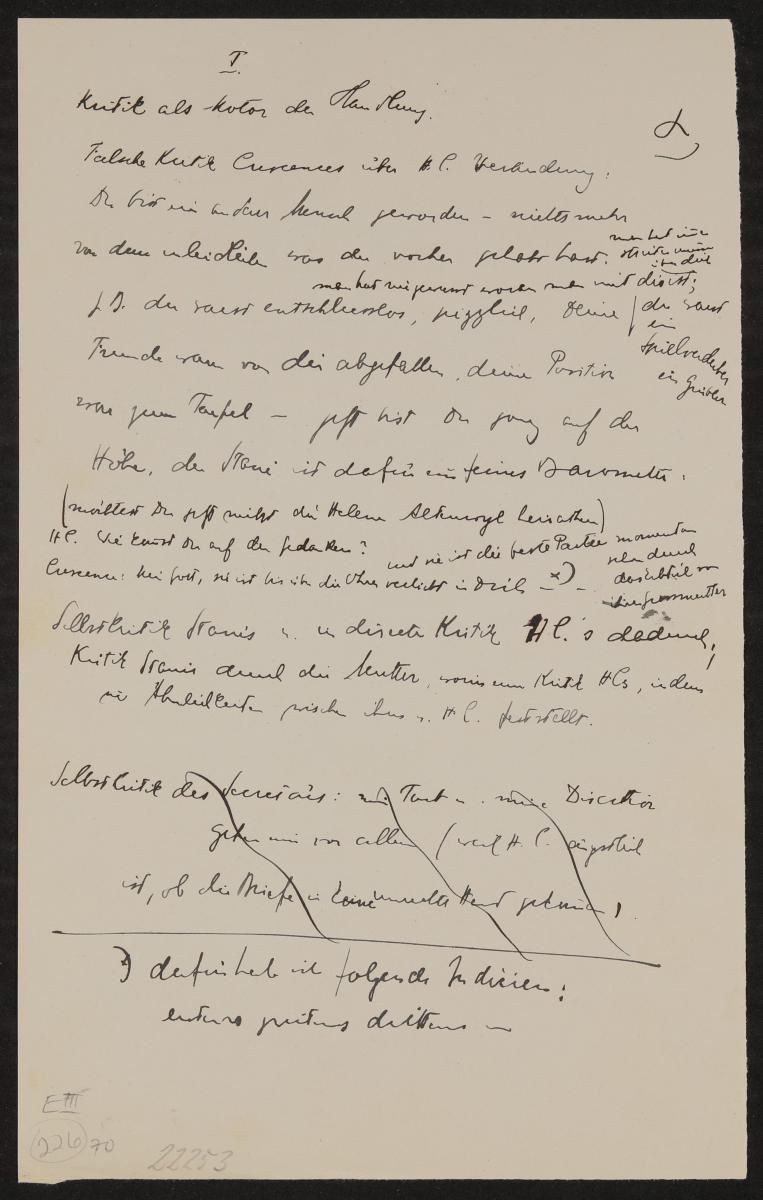 I.
Kritik als Motor der Handlung.
α
Falsche Kritik Crescences über H.C. Veränderung:
Du bist ein anderer Mensch geworden – nichts mehr
von dem unleidlichen was du vorher gehabt hast.
man hat nie gewusst woran man mit dir ist;
z B. du warst entschlusslos, Deine
du warst
ein
Spielverderber
ein Grübler
Freunde waren von dir abgefallen, deine Position
war zum Teufel – jetzt bist Du ganz auf der
Höhe, der Stani ist dafür ein feines Barometer.
(möchtest Du jetzt nicht die Helene Altenwyl heirathen)
HC. Wie kommst Du auf den Gedanken?
und sie ist die beste Partie momentan
Crescence: Mein Gott, sie ist bis über die Ohren verliebt in Dich – x) –
Selbstkritik Stanis u. indirecte Kritik HC.'s dadurch;
Kritik Stanis durch die Mutter, worin eine Kritik HCs, indem
sie Ähnlichkeiten zwischen ihm u. H C. feststellt.
Selbstkritik des Secretärs: mein Tact u. meine Discretion
gehen mir vor allem (weil H. C. ängstlich
ist, ob die Briefe in keine unrechte Hand gekommen)
x) dafür hab ich folgende Indicien:
erstens zweitens drittens
E III
226
70
22253